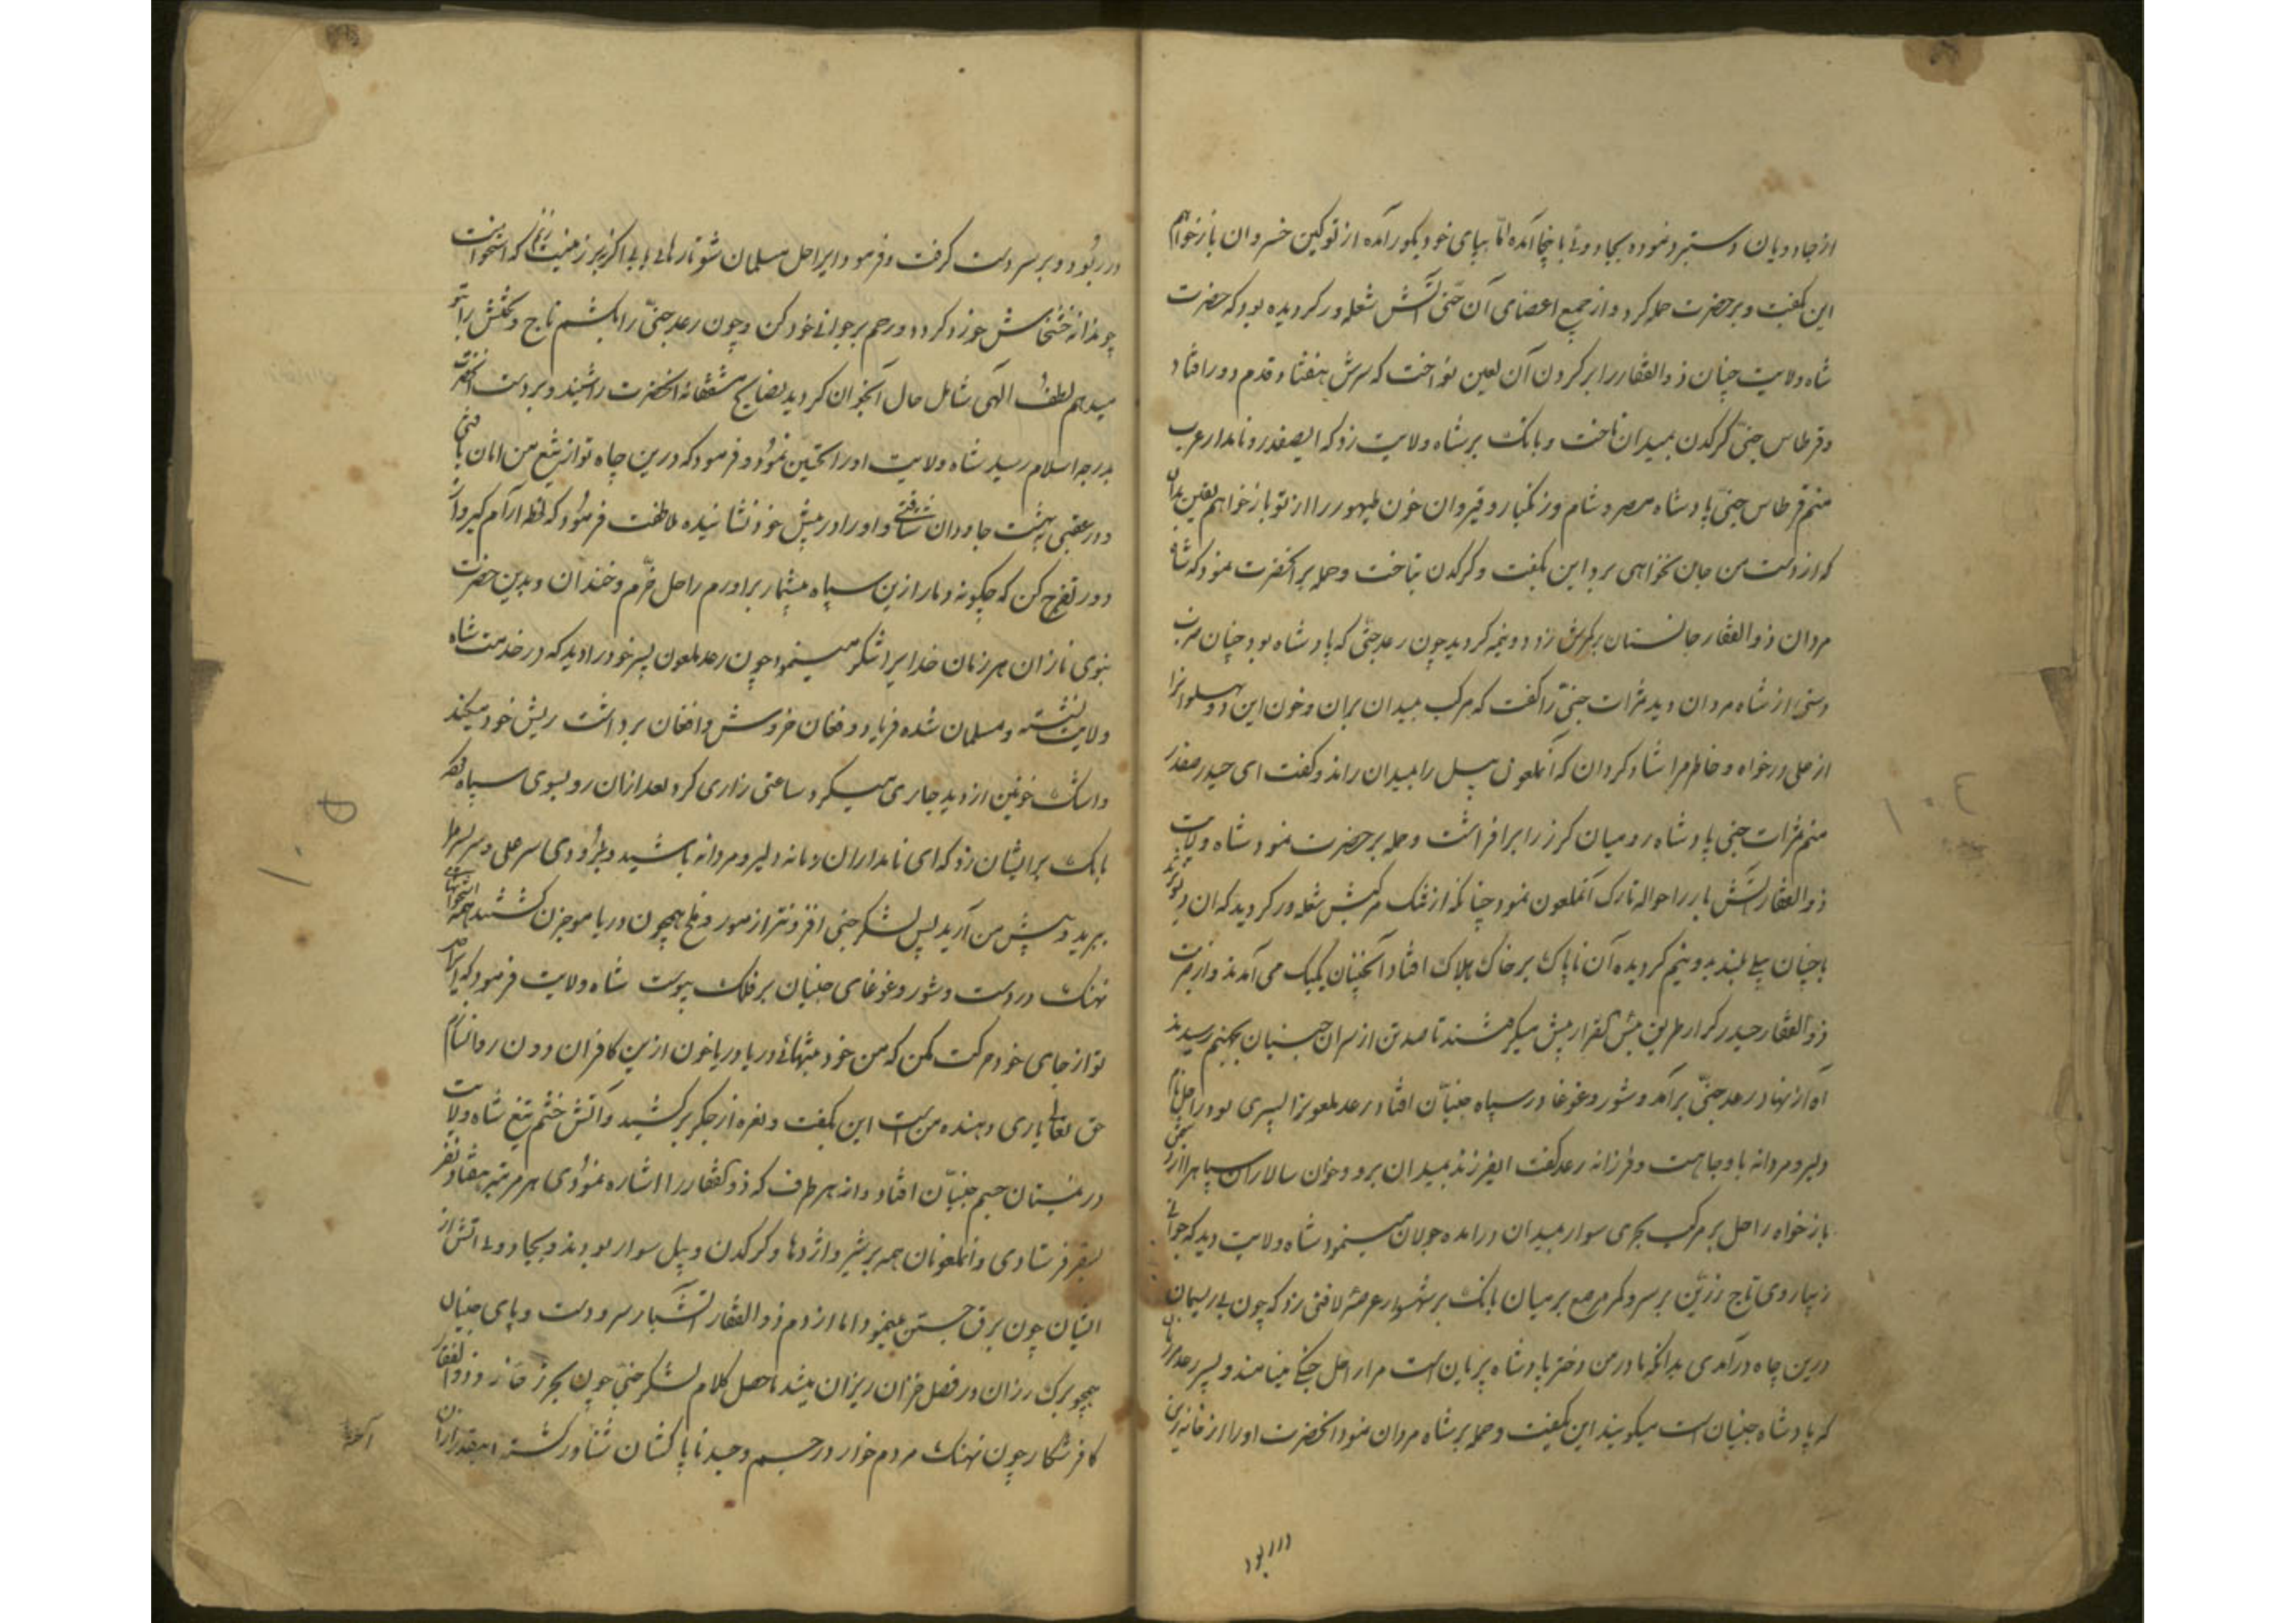 از جادویان دستبرد نموده بجادوئی باینجا آمده اما بپای خود بکور آمده از تو کین خسروان باز خواهم
این بگفت و بر حضرت حمله کرد و از جمیع اعضای آن جنی آتش شعله ور کردیده بود که حضرت
شاه ولایت چنان ذوالفقار را بر کردن آن لعین نواخت که سرش هفتاد قدم دور افتاد
و قرطاس جنی کرکدن بمیدان تاخت و بانک بر شاه ولایت زد که ایصفدر و نامدار عرب
منم قرطاس جنی پادشاه مصر و شام و زنکبار و قیروان خون طیهور را از تو باز خواهم یقین بدان
که از دست من جان نخواهی برد این بگفت و کرکدن بتاخت و حمله بر آنحضرت نمود که شاه
مردان ذوالفقار جانستان بر سرش زد دو نیمه کردید چون رعد جنی که پادشاه بود چنان ضرب
دستی از شاه مردان دید مرات جنی را گفت که مرکب بمیدان بران و خون این دو پهلوانرا
از علی درخواه و خاطر مرا شاد کردان که آنملعون پیل را بمیدان راند و کفت ای حیدر صفدر
منم مرات جنی پادشاه رومیان کرز را بر افراشت و حمله بر حضرت نمود شاه ولایت
ذوالفقار آتش بار را حواله تارک آنملعون نمود چنانکه از تنک مرکبش شعله ور کردید که آن
با چنان پیلی بلند بدو نیم کردیده آن ناپاک بر خاک هلاک افتاد آنچنان یکیک می آمدند و از ضرب
ذوالفقار حیدر کرار طریق بئس القرار پیش میکرفتند تا صد تن از سران جنیان بجهنم رسیدند
آه از نهاد رعد جنی بر آمد و شور و غوغا در سپاه جنیان افتاد رعد ملعونرا پسری بود راحل نام
دلیر و مردانه با وجاهت و فرزانه رعد کفت ایفرزند بمیدان برو و خون سالاران سپاهرا از
باز خواه راحل بر مرکب بحری سوار بمیدان در آمده جولان مینمود شاه ولایت دید که جوانی
زیبا روی تاج زرین بر سر و کمر مرصع بر میان بانک بر شهسوار عرصه لافتی زد که چون بی ریسمان
درین چاه در آمدی بدانکه مادر من دختر پادشاه پریان است مرا راحل جنی مینامند و پسر رعد
که پادشاه جنیان است میکویند این بگفت و حمله بر شاه مردان نمود آنحضرت او را از خانه زین
در ربود
در ربود و بر سر دست کرفت و فرمود ایراحل مسلمان شو تا رهائی یابی اکر نه بر زمینت زنم که استخوانت
چو دانه خشخاش خورد کردد و رحم بر جوانی خود کن و چون رعد جنی را بکشم تاج و تختش را بتو
میدهم لطف الهی شامل حال آنجوان کردید نصایح مشفقانه آنحضرت را شنید و بر دست آنحضرت
بدرجه اسلام رسید شاه ولایت او را تحسین نمود و فرمود که درین چاه تو از تیغ من امان یافتی
و در عقبی بهشت جاودان شتافتی و او را در پیش خود نشانیده ملاطفت فرمود که لحظه آرام کیر
و در تفرج کن که چکونه دمار ازین سپاه بیشمار بر آورم راحل خرم و خندان و بدین حضرت
نبوی نازان هر زمان خدایرا شکر مینمود چون رعد ملعون پسر خود را دید که در خدمت شاه
ولایت نشسته و مسلمان شده فریاد و فغان خروش و افغان برداشت ریش خود میکند
و اشک خونین از دیده جاری میکرد ساعتی زاری کرد بعد از آن رو بسوی سپاه
بانک بر ایشان زد که ای نامداران زمانه دلیر و مردانه باشید و بزودی سر علی و سر پسر مرا
ببرید و پیش من آرید پس لشکر جنی افزونتر از مور و ملخ همچون دریا موجزن کشتند همه استخوانهای
نهنک در دست و شور و غوغای جنیان بر فلک پیوست شاه ولایت فرمود که ایراحل
تو از جای خود حرکت مکن که من خود بتنهائی دریا دریا خون ازین کافران دون روانسازم
حق تعالی یاری دهنده من است این بگفت و نعره از جکر برکشید و آتش خشم تیغ شاه ولایت
در نیستان جسم جنیان افتاد و از هر طرف که ذوالفقار را اشاره نمودی هر مرتبه هفتاد نفر
بسقر فرستادی و آنملعونان همه بر شیر و اژدها و کرکدن و پیل سوار بودند و بجادوئی آتش از
ایشان چون برق جستن مینمود اما از دم ذوالفقار آتشبار سر و دست و پای جنیان
همچو برک رزان در فصل خزان ریزان میشد حاصل کلام لشکر جنی چون بحر ذخار و ذوالفقار
کافر شکار چون نهنک مردم خوار در جسم وجید ناپاکشان شناور کشته اینقدر از آن